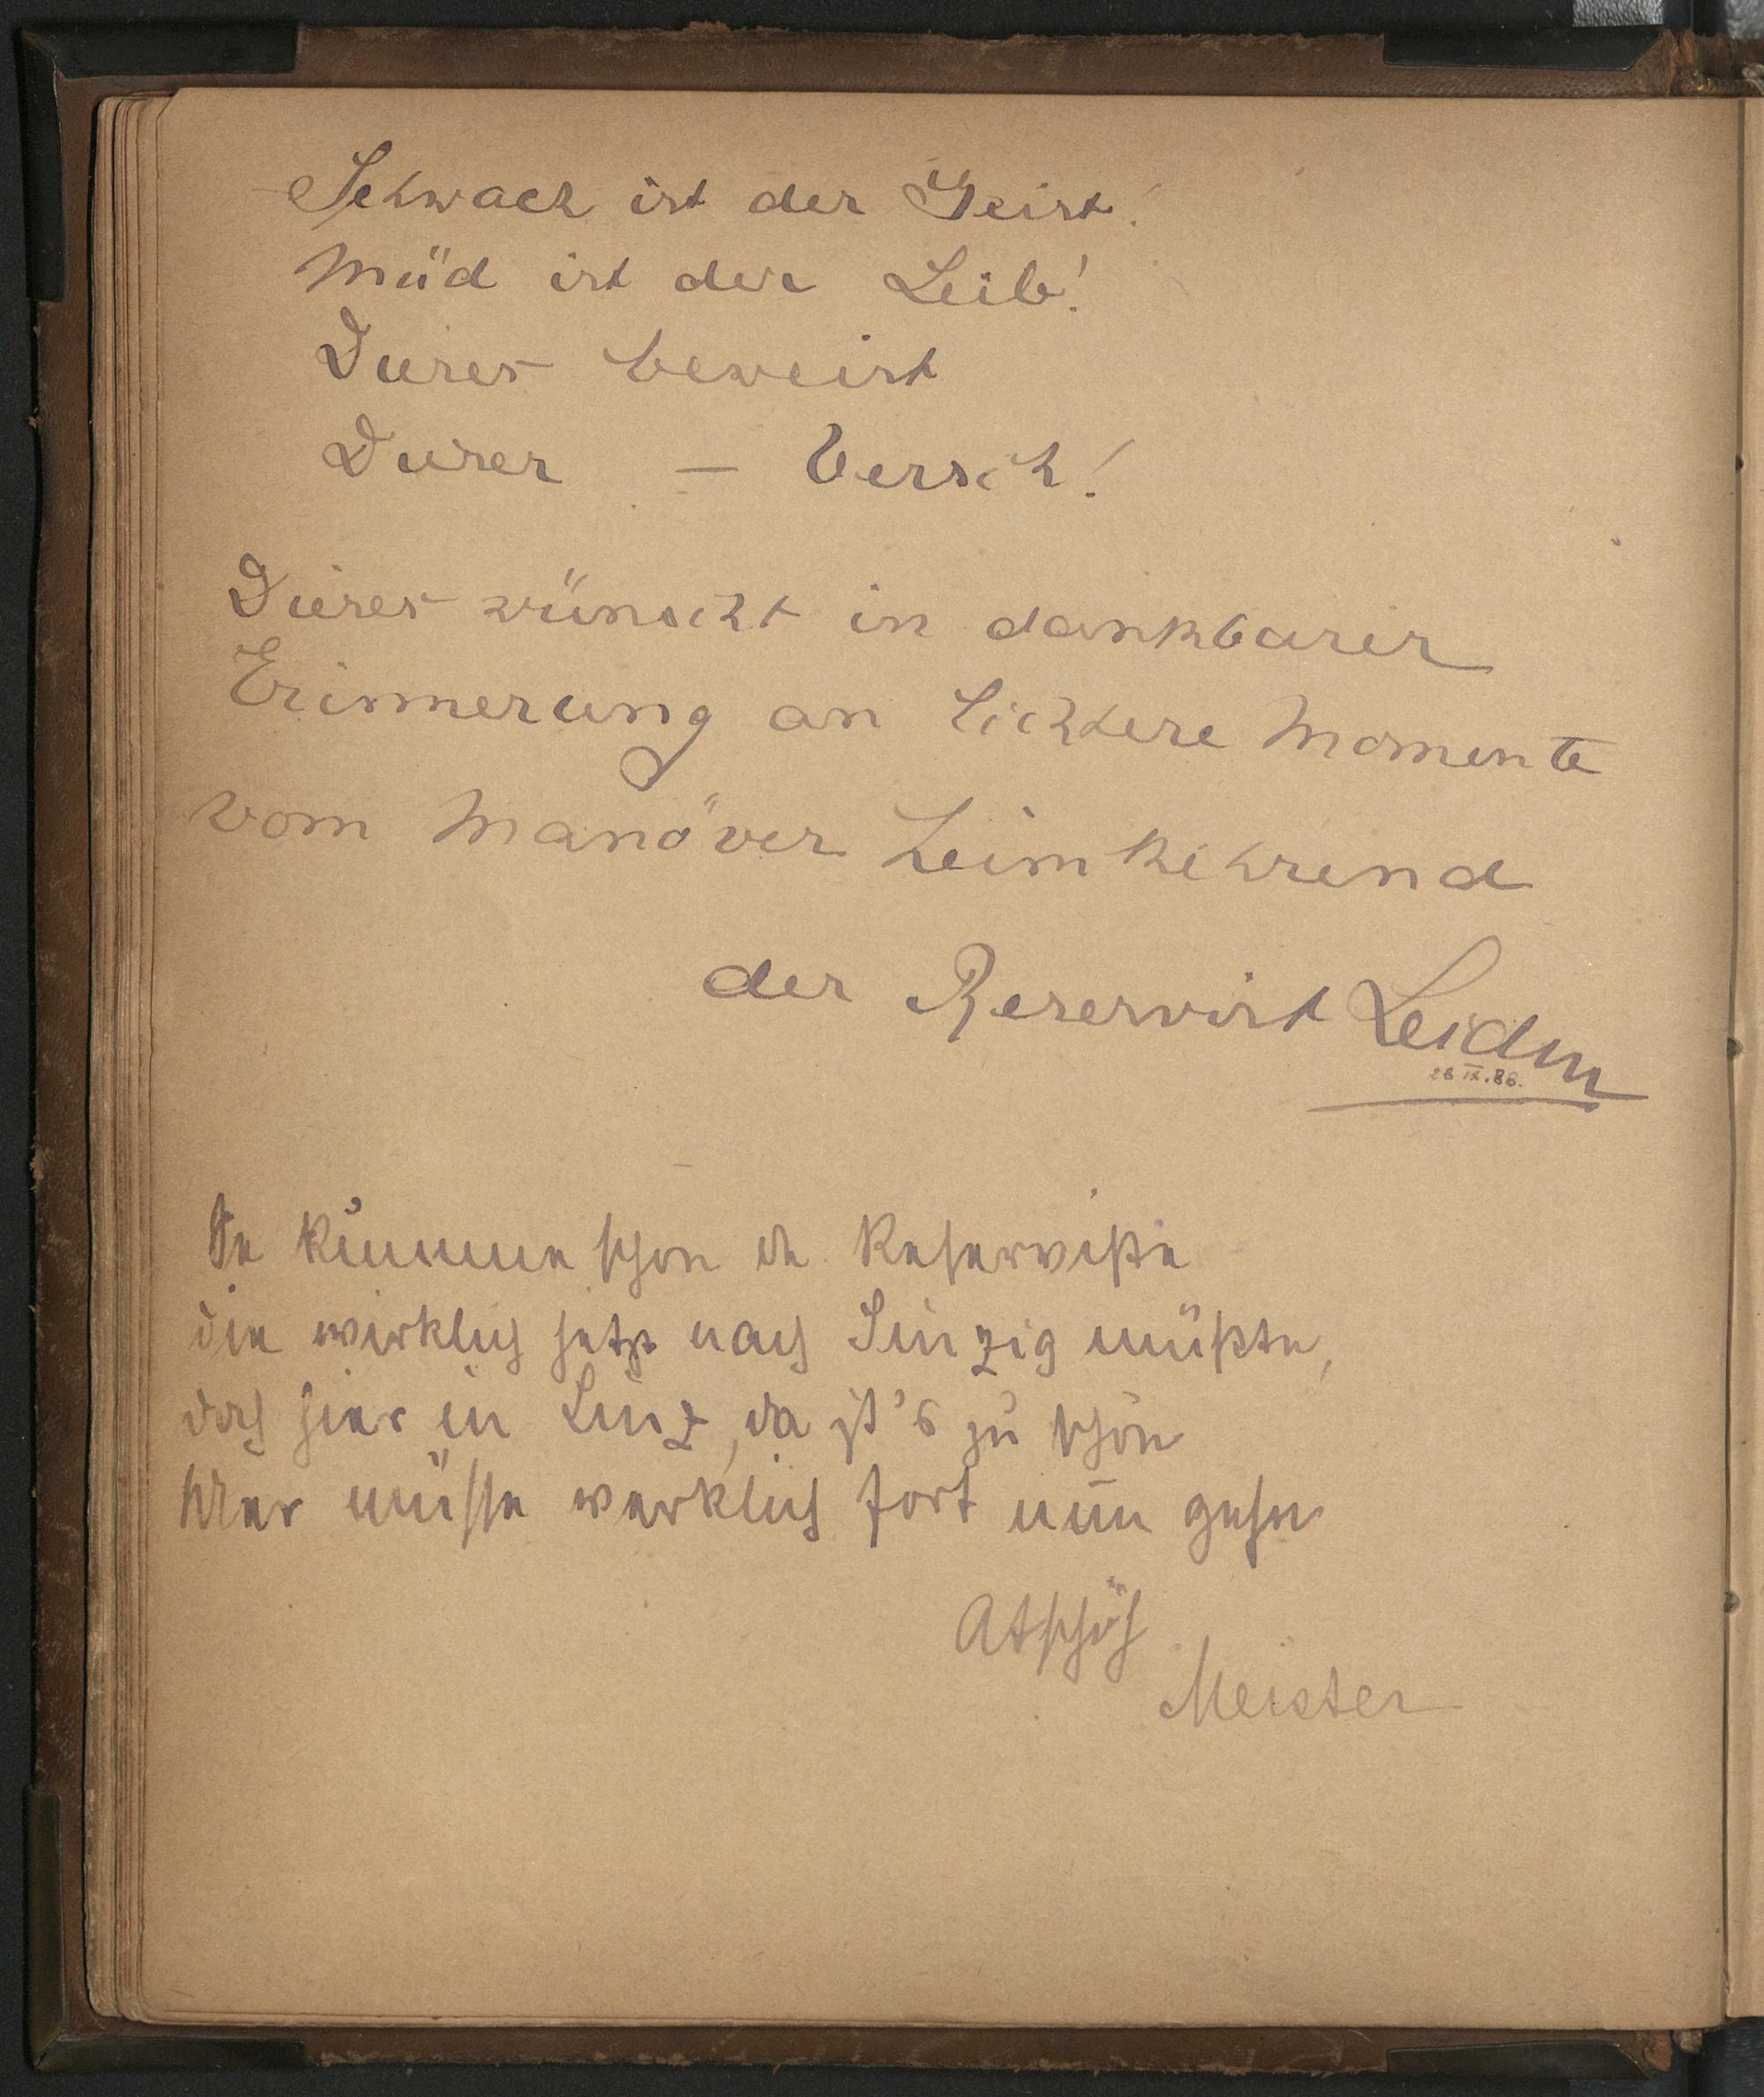 Schwach ist der Geist!
Müd ist der Leib!
Dieses beweist
Dieser — Versch!
Dieses wünscht in dankbarer
Erinnerung an lichtere Momente
vom Manöver heimkehrend
der Reservist Leiden
26 IX. 86.
Se kumme schon de Reserviste
die wirklich jetzt nach Sinzig müßte,
doch hier in Linz, da ist's zu schön
Mer müsse werklich fort nun gehn
Atschöh
Meister